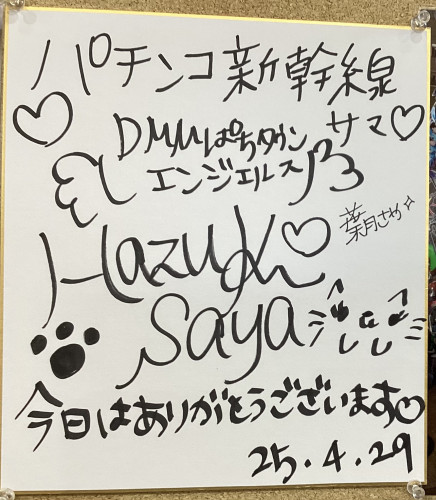 パチンコ新幹線
サマ♡
DMMぱちタウン
エンジェルス
Hazuki
葉月さや☆
Saya
今日はありがとうございます♡
25.4.29